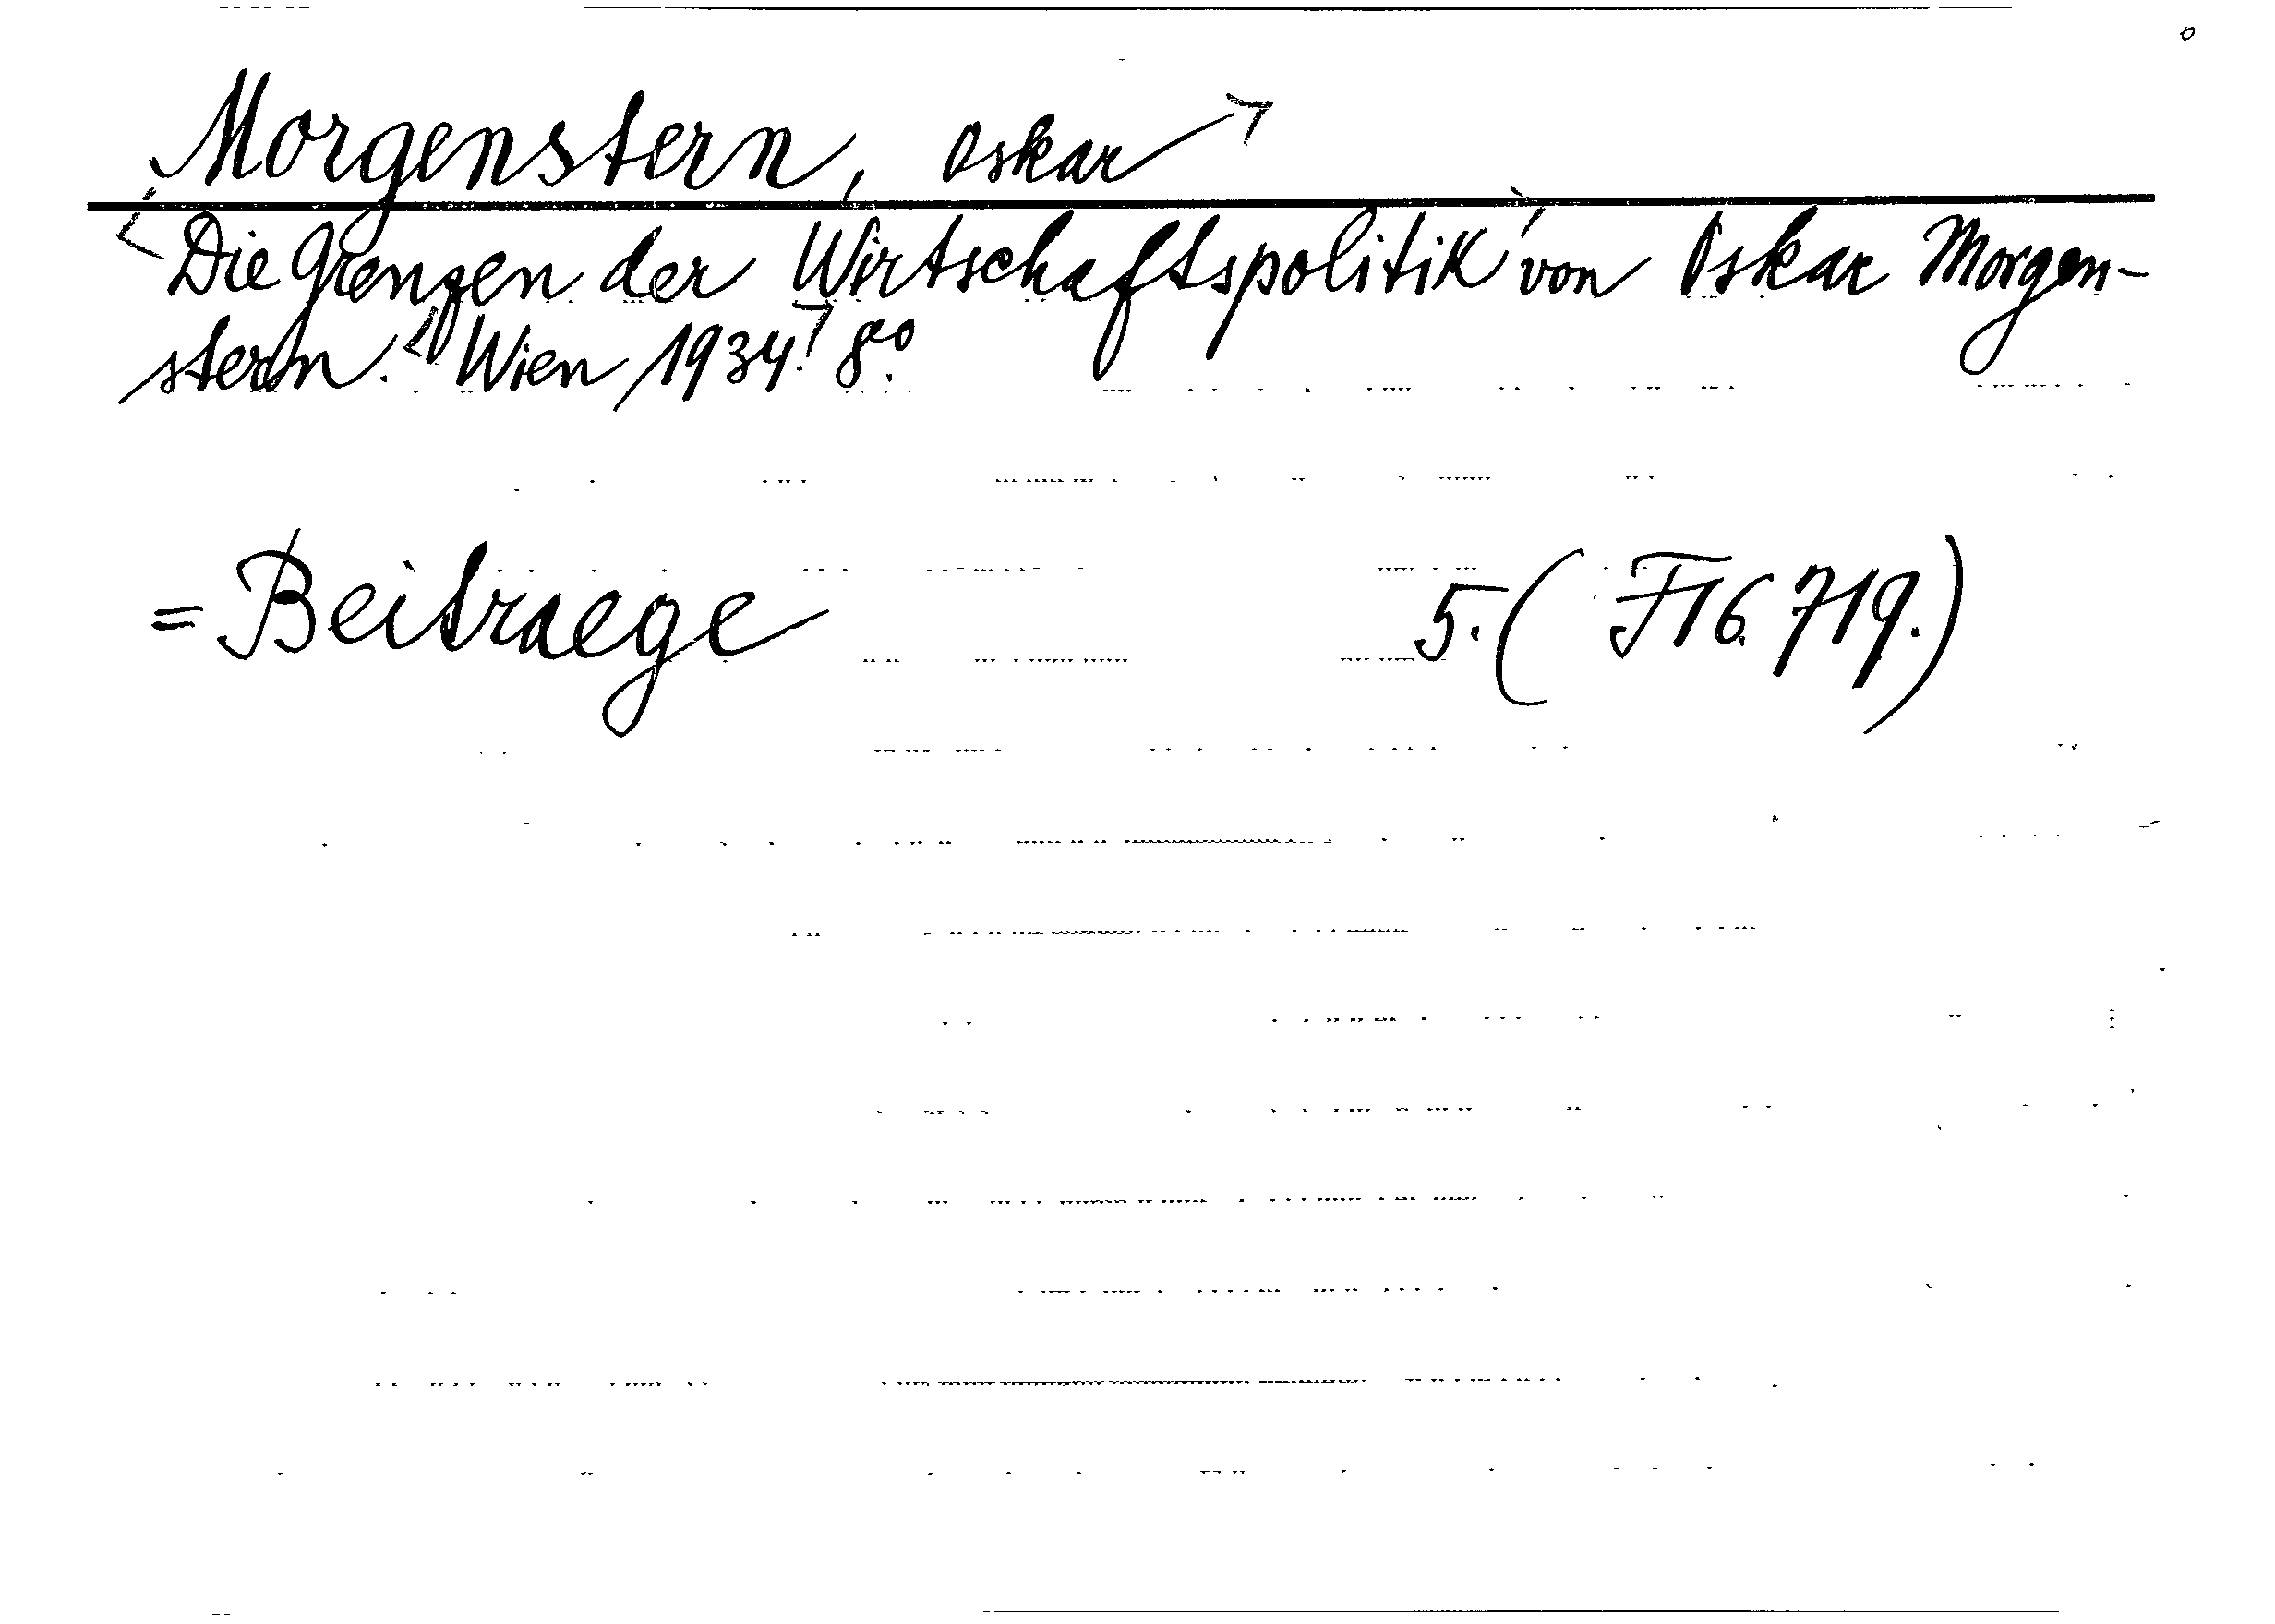 Morgenstern, Oskar
Die Grenzen der Wirtschaftspolitik von Oskar Morgen-
stern. Wien, 1934. 8°.
= Beitraege 5. (F16.719.)